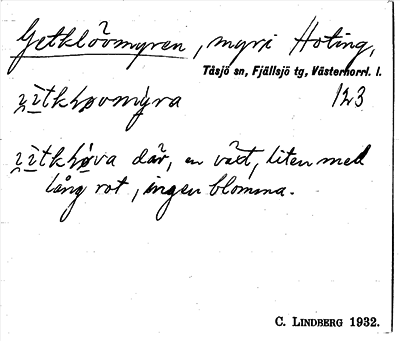 Getklövmyren, myr i Hoting,
Tåsjö sn, Fjällsjö tg, Västernorrl. l.
123
där, en växt, liten med
lång rot, ingen blomma.
C. LINDBERG 1932.